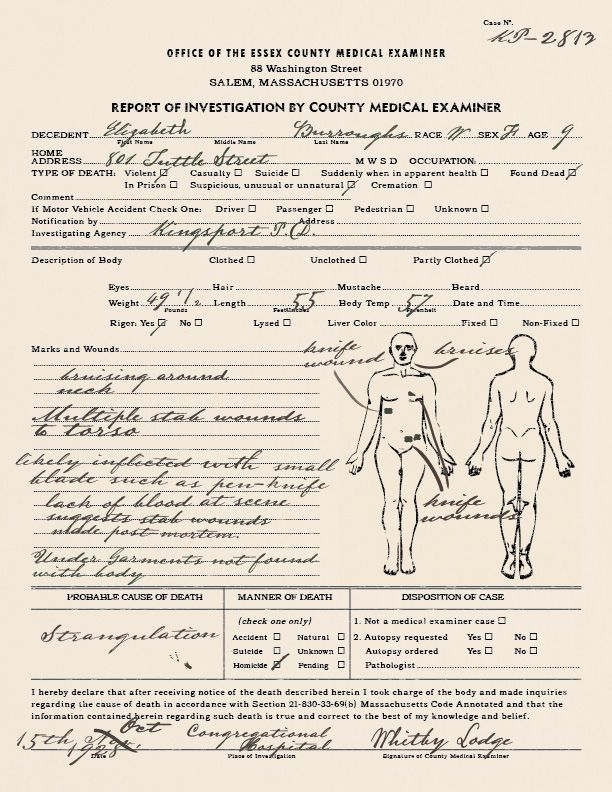 Case Nº.
KP-2813
OFFICE OF THE ESSEX COUNTY MEDICAL EXAMINER
88 Washington Street
SALEM, MASSACHUSETTS 01970
REPORT OF INVESTIGATION BY COUNTY MEDICAL EXAMINER
DECEDENT Elizabeth Burroughs RACE W SEX F AGE 9
First Name Middle Name Last Name
HOME ADDRESS 801 Tuttle Street M W S D OCCUPATION:
TYPE OF DEATH: Violent ☑ Casualty ☐ Suicide ☐ Suddenly when in apparent health ☐ Found Dead ☑
In Prison ☐ Suspicious, unusual or unnatural ☑ Cremation ☐
Comment
If Motor Vehicle Accident Check One: Driver ☐ Passenger ☐ Pedestrian ☐ Unknown ☐
Notification by Address
Investigating Agency Kingsport P.D.
Description of Body Clothed ☐ Unclothed ☐ Partly Clothed ☑
Eyes Hair Mustache Beard
Weight 49 1/2 Length 55 Body Temp 57 Date and Time
Pounds Feet/Inches Farenheit
Rigor: Yes ☑ No ☐ Lysed ☐ Liver Color Fixed ☐ Non-Fixed ☐
Marks and Wounds
knife wound
bruises
bruising around
neck
Multiple stab wounds
to torso
likely inflicted with small
blade such as pen-knife
lack of blood at scene
suggests stab wounds
made post mortem.
Under Garments not found
with body
knife
wounds
PROBABLE CAUSE OF DEATH MANNER OF DEATH DISPOSITION OF CASE
Strangulation
(check one only)
Accident ☐ Natural ☐
Suicide ☐ Unknown ☐
Homicide ☑ Pending ☐
1. Not a medical examiner case ☐
2. Autopsy requested Yes ☐ No ☐
Autopsy ordered Yes ☐ No ☐
Pathologist
I hereby declare that after receiving notice of the death described herein I took charge of the body and made inquiries
regarding the cause of death in accordance with Section 21-830-33-69(b) Massachusetts Code Annotated and that the
information contained herein regarding such death is true and correct to the best of my knowledge and belief.
15th Oct 1928 Congregational Hospital Whitby Lodge
Date Place of Investigation Signature of County Medical Examiner